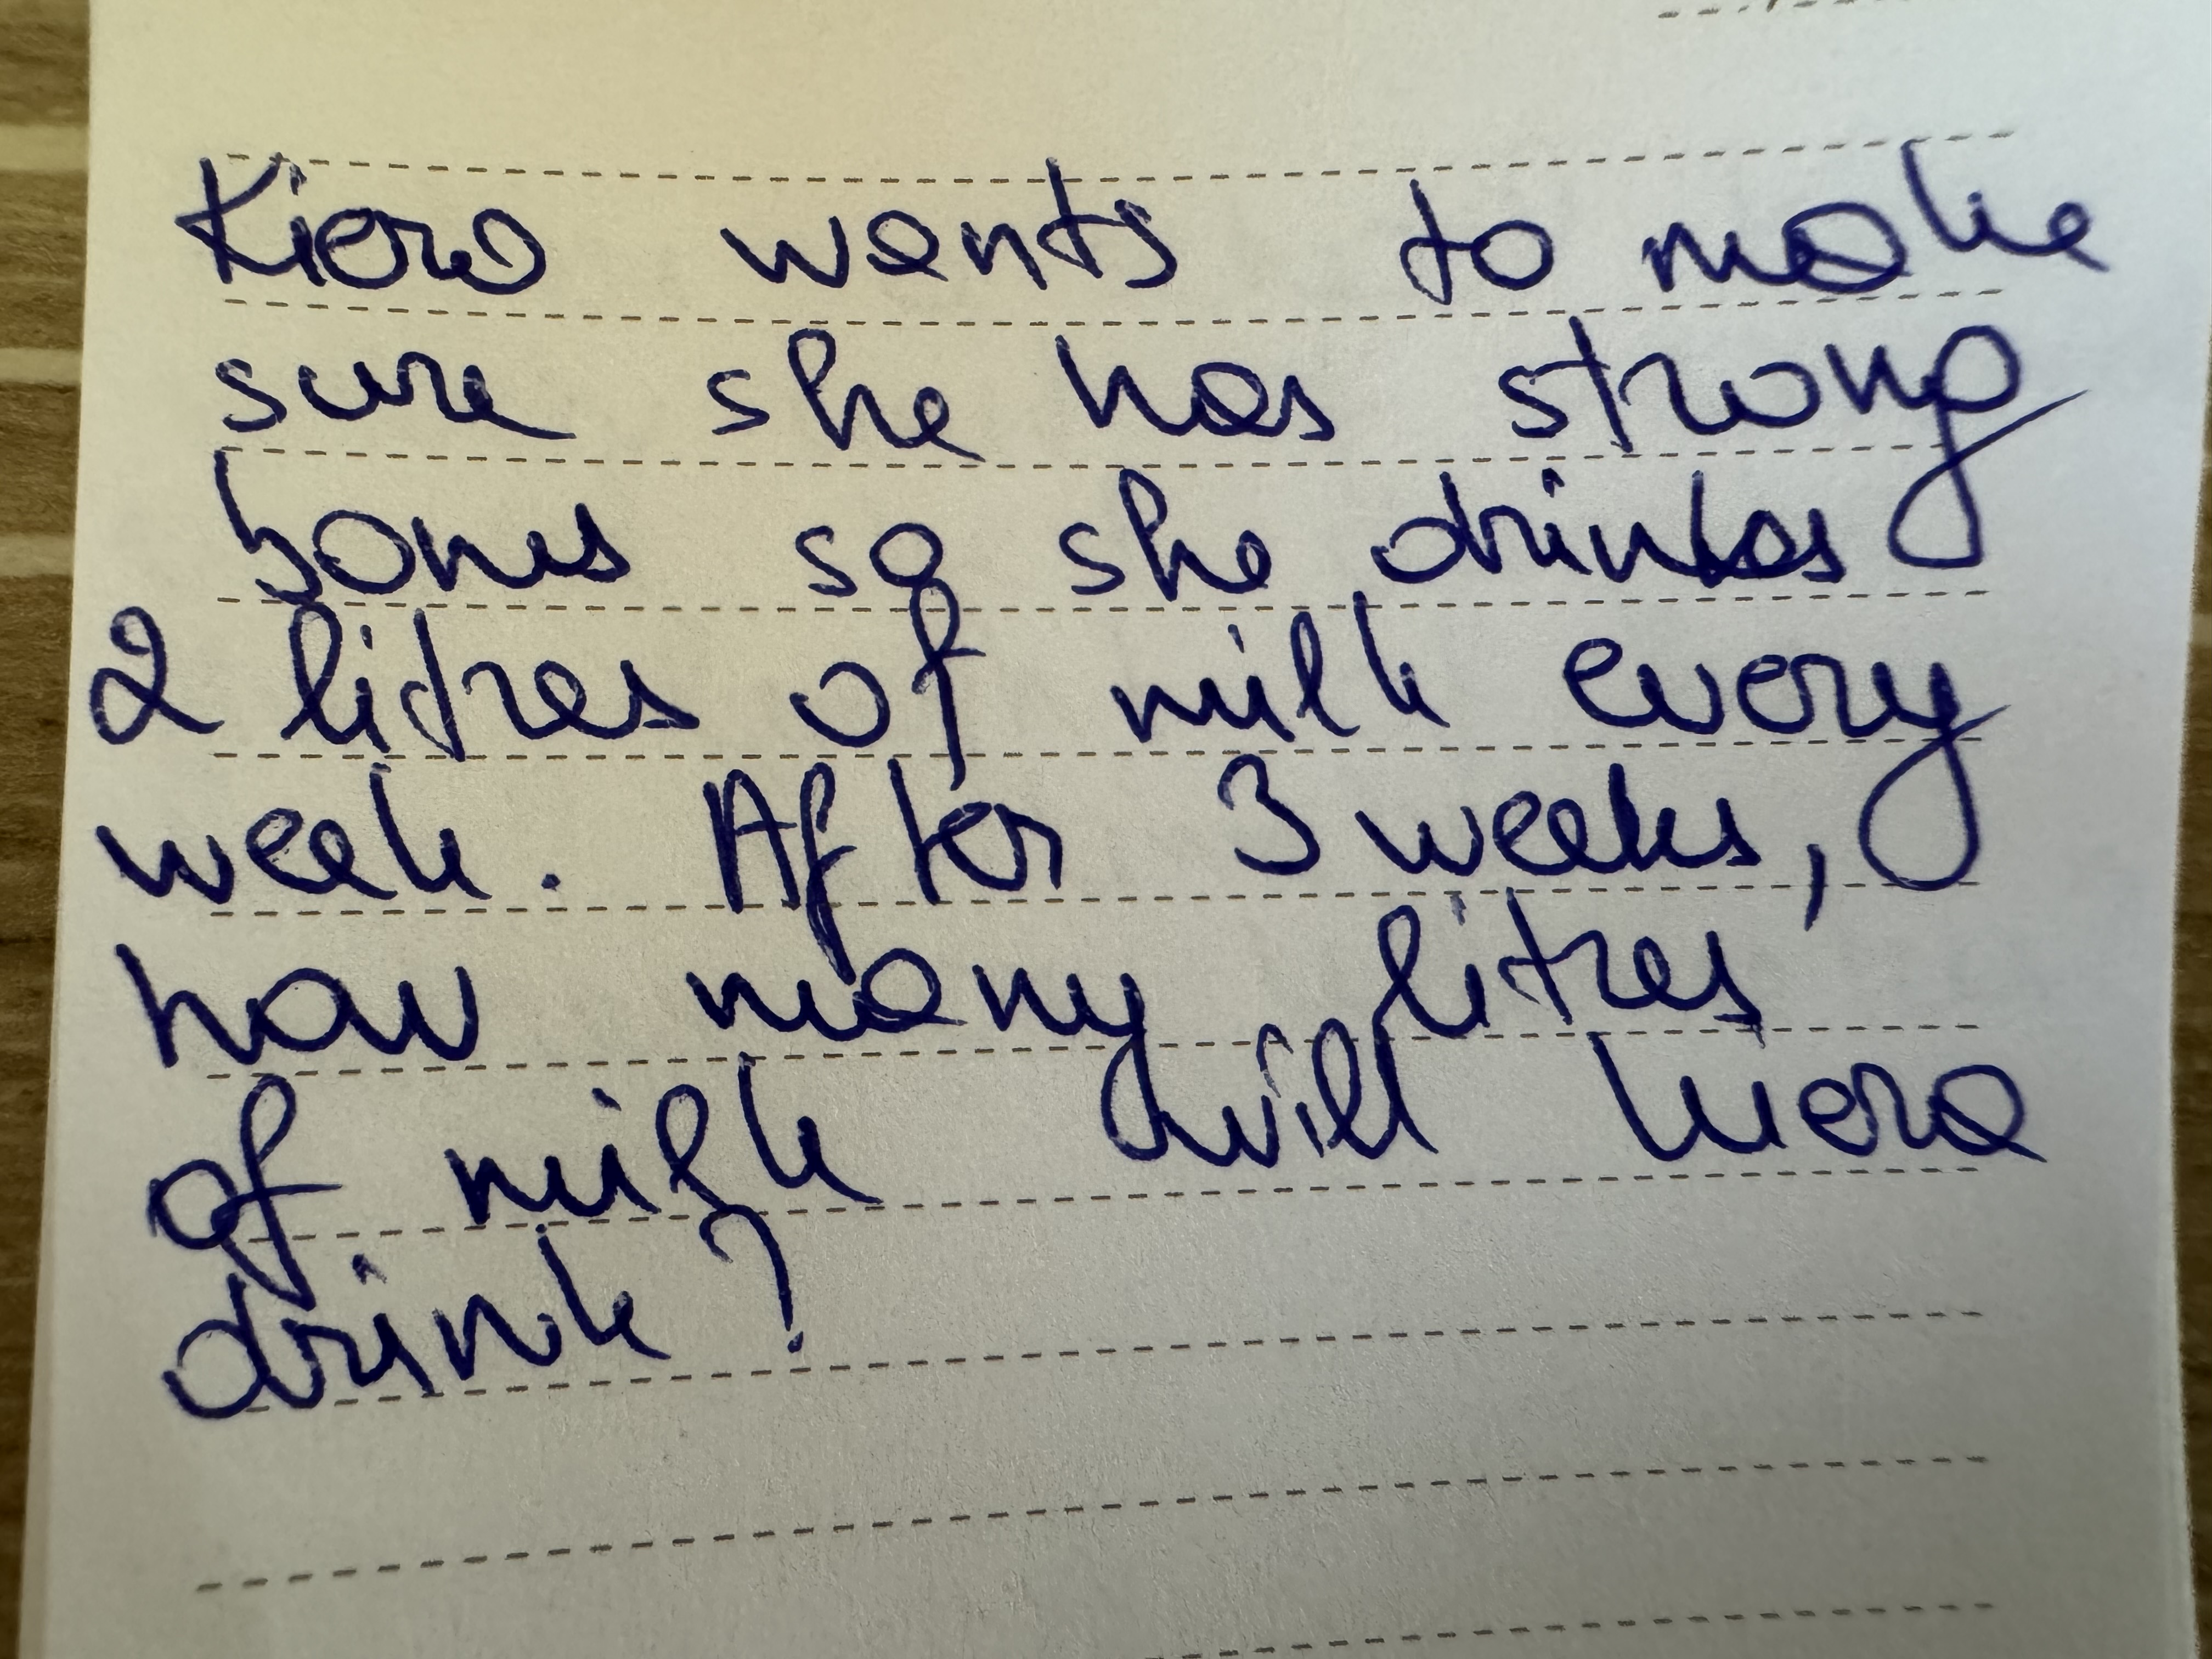 Kiera wants to make
sure she has strong
bones so she drinks
2 litres of milk every
week. After 3 weeks,
how many litres
of milk will Kiera
drink?